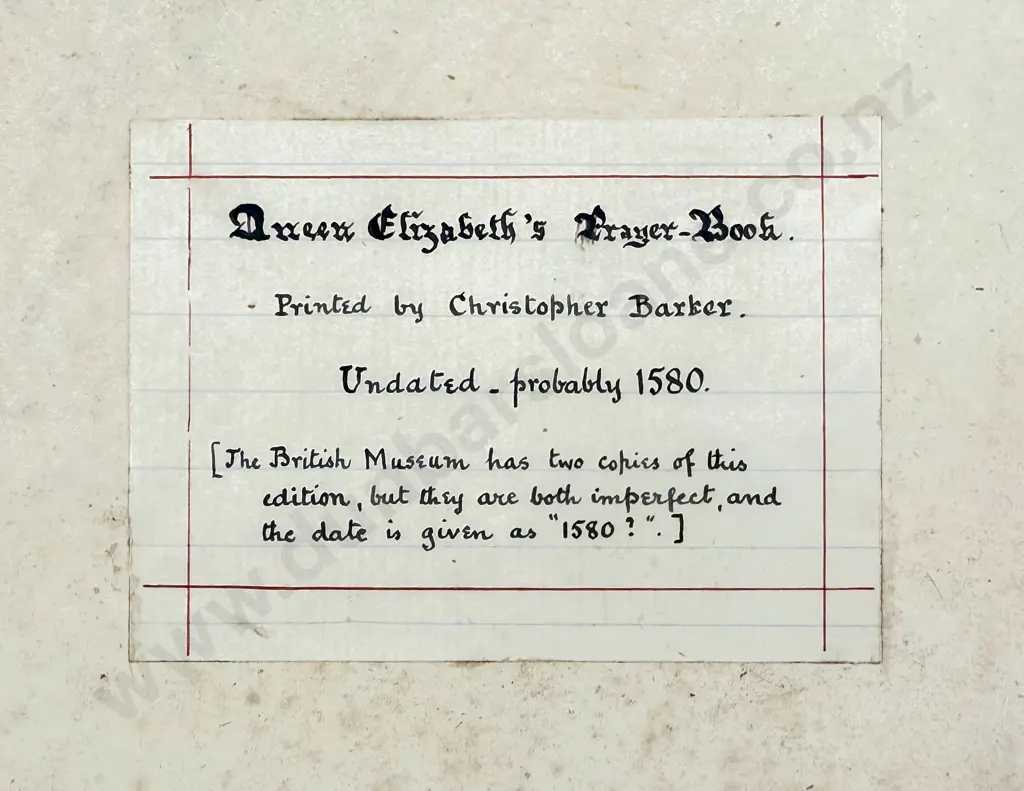 Queen Elizabeth's Prayer-Book.
- Printed by Christopher Barker.
Undated - probably 1580.
[The British Museum has two copies of this
edition, but they are both imperfect, and
the date is given as "1580?". ]
www.dunbarsloane.co.nz